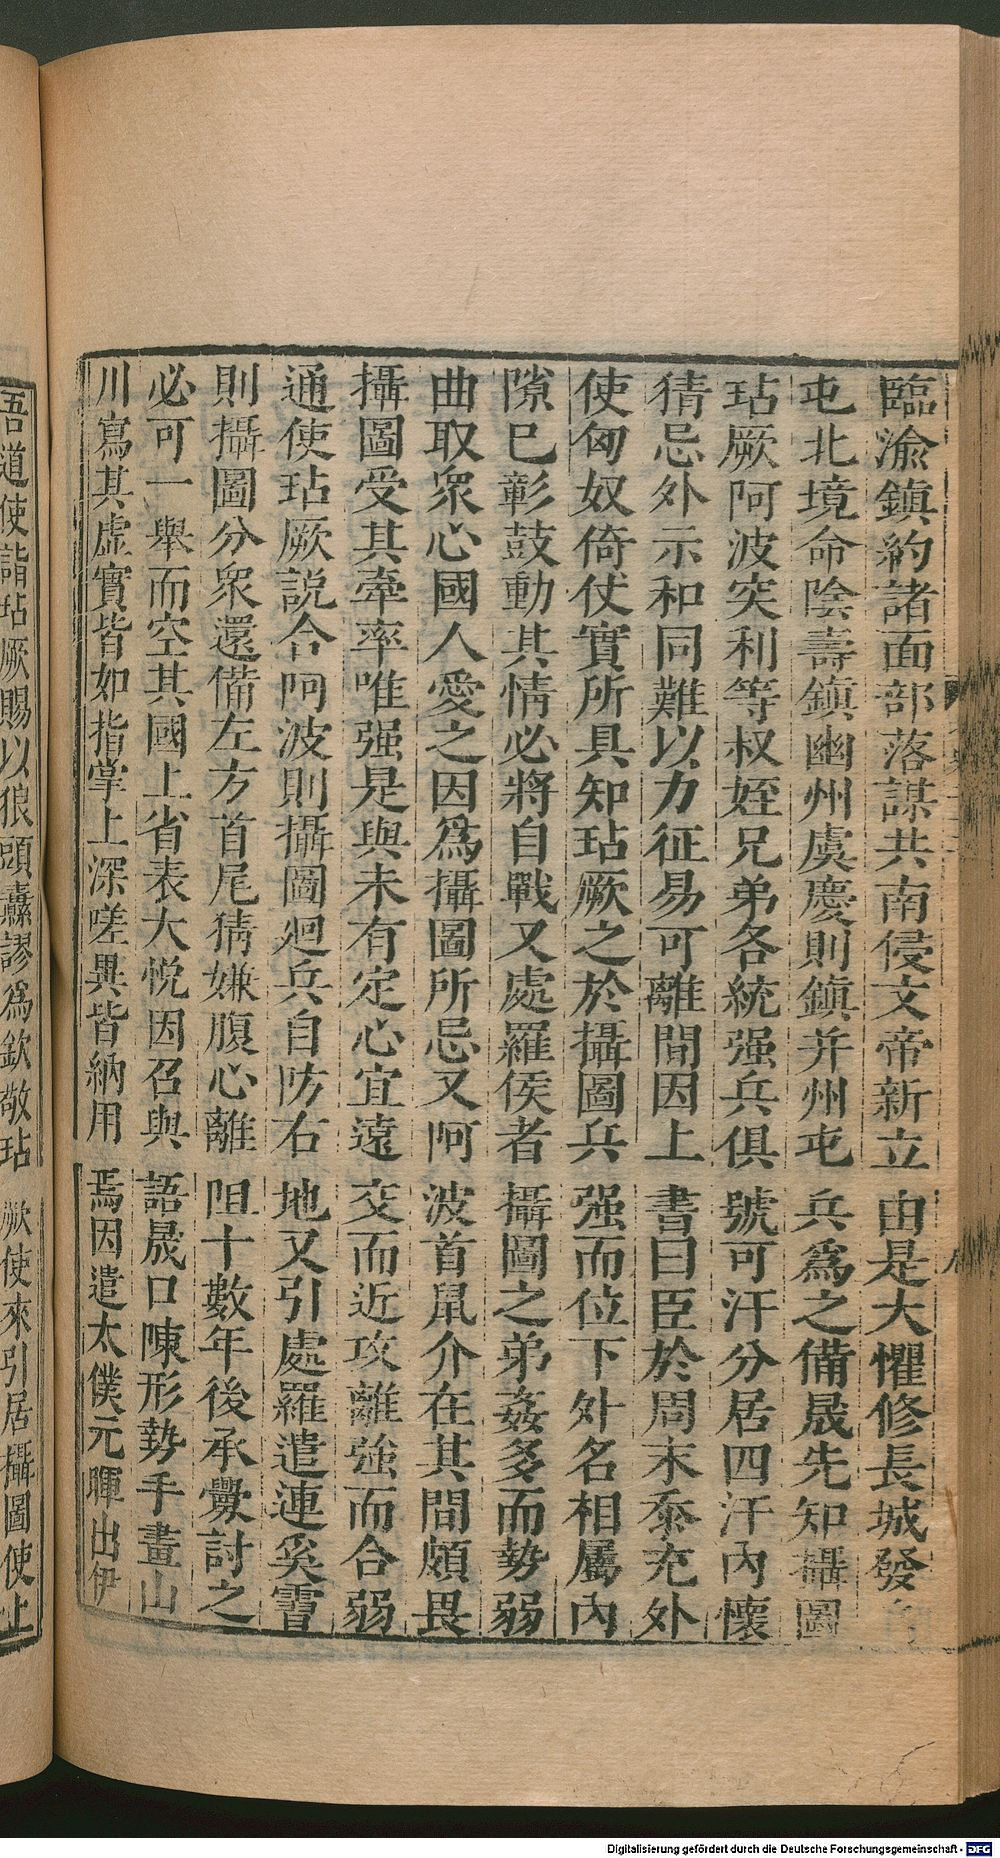 臨渝鎮約諸面部落謀共南侵文帝新立由是大懼修長城發
屯北境命陰壽鎮幽州虞慶則鎮并州屯兵爲之備晟先知攝圖
玷厥阿波突利等叔姪兄弟各統强兵俱號可汗分居四汗內懷
猜忌外示和同難以力征易可離間因上書曰臣於周末忝充外
使匈奴倚仗實所具知玷厥之於攝圖兵强而位下外名相屬內
隙已彰鼓動其情必將自戰又處羅侯者攝圖之弟姦多而勢弱
曲取衆心國人愛之因爲攝圖所忌又阿波首鼠介在其間頗畏
攝圖受其牽率唯强是與未有定心宜遠交而近攻離強而合弱
通使玷厥説合阿波則攝圖廻兵自防右地又引處羅遣連奚霫
則攝圖分衆還備左方首尾猜嫌腹心離阻十數年後承釁討之
必可一舉而空其國上省表大悅因召與語晟口陳形勢手畫山
川寫其虛實皆如指掌上深嗟異皆納用焉因遣太僕元暉出伊
吾道使詣玷厥賜以狼頭纛謬爲欽敬玷厥使來引居攝圖使上
Digitalisierung gefördert durch die Deutsche Forschungsgemeinschaft - DFG